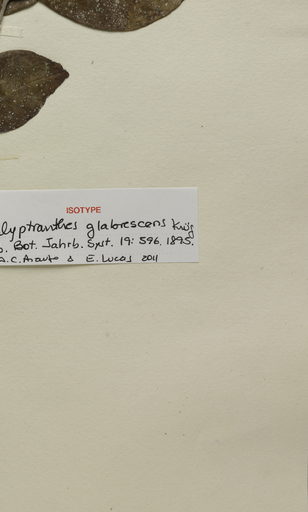 ISOTYPE
lyptranthes glabrescens Krug
Bot. Jahrb. Syst. 19: 596. 1895.
A.C. Araujo & E. Lucas 2011